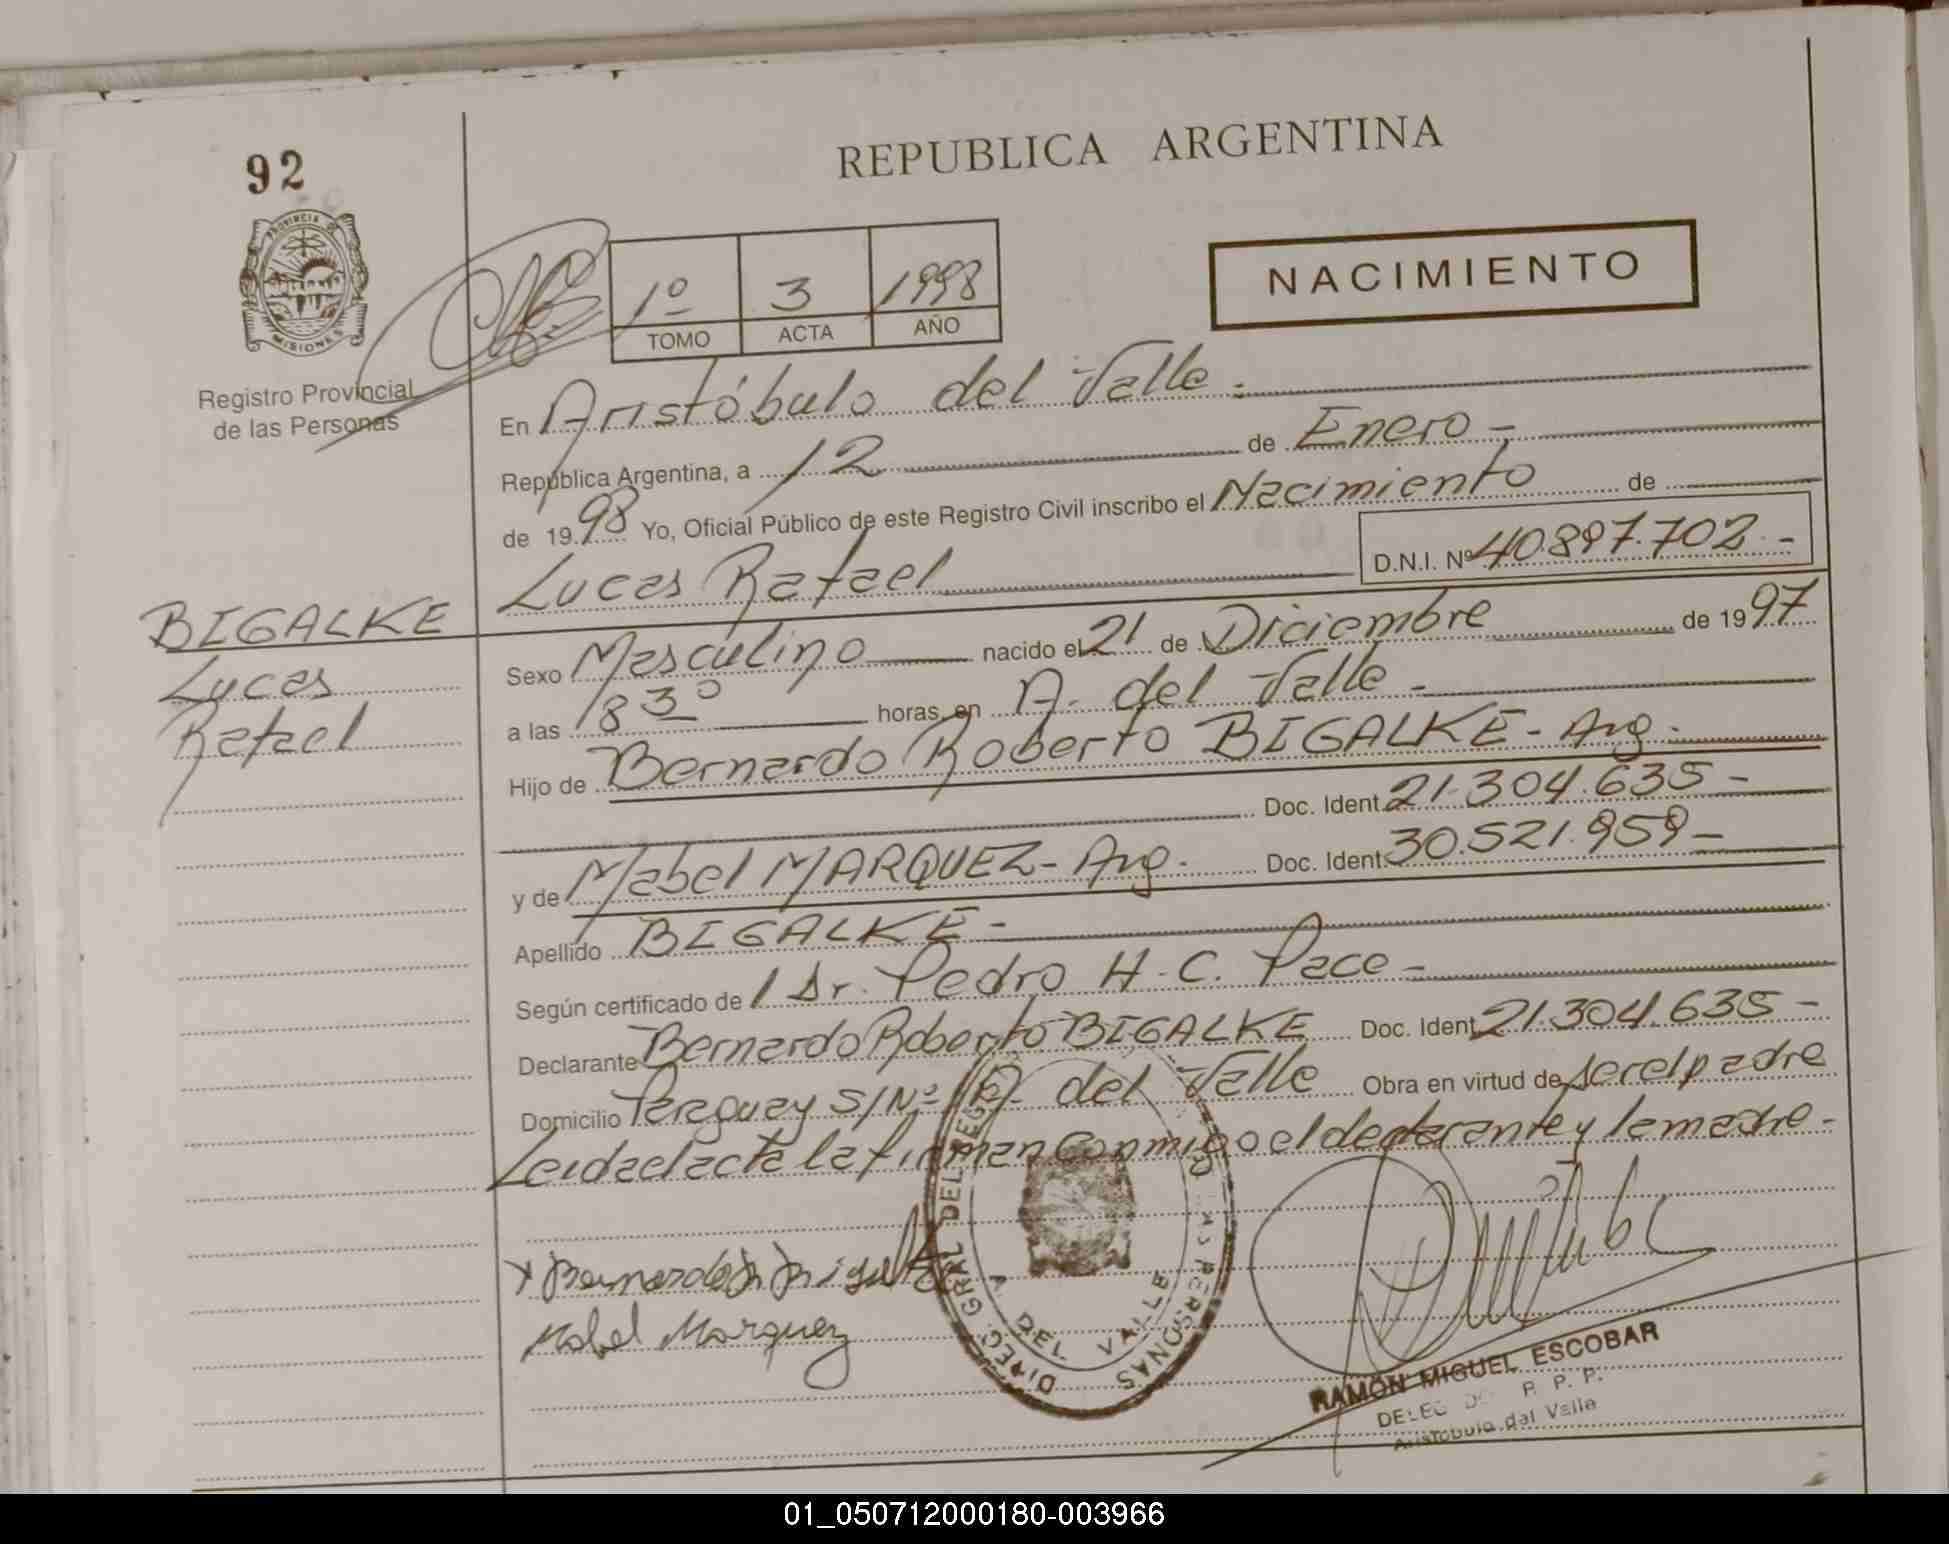 92
REPUBLICA ARGENTINA
PROVINCIA DE
MISIONES
Registro Provincial
de las Personas
1º 3 1998
TOMO ACTA AÑO
NACIMIENTO
En Aristóbulo del Valle.-
República Argentina, a 12 de Enero-
de 1998 Yo, Oficial Público de este Registro Civil inscribo el Nacimiento de
Lucas Rafael D.N.I. Nº 40.897.702.-
BIGALKE
Lucas
Rafael
Sexo Masculino nacido el 21 de Diciembre de 1997
a las 18 30 horas, en A. del Valle-
Hijo de Bernardo Roberto BIGALKE- Arg.
Doc. Ident. 21.304.635-
y de Mabel MARQUEZ- Arg. Doc. Ident. 30.521.959-
Apellido BIGALKE-
Según certificado de / Dr. Pedro H. C. Pace-
Declarante Bernardo Roberto BIGALKE Doc. Ident. 21.304.635-
Domicilio Paraguay S/Nº A. del Valle Obra en virtud de ser el padre
Leida el acta la firman conmigo el declarante y la madre-
x Bernardo
Mabel Marquez
DIREC. GRAL DEL REG. PERSONAS
A DEL VALLE
RAMÓN MIGUEL ESCOBAR
DELEG P. P. P.
Aristóbulo del Valle
01_050712000180-003966